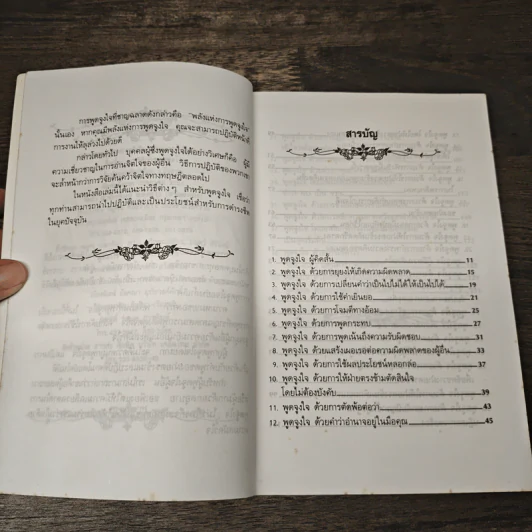 การพูดจูงใจที่ชาญฉลาดดังกล่าวคือ "พลังแห่งการพูดจูงใจ"
นั่นเอง หากคุณมีพลังแห่งการพูดจูงใจ คุณจะสามารถปฏิบัติหน้าที่
การงานให้ลุล่วงไปด้วยดี
กล่าวโดยทั่วไป บุคคลผู้ซึ่งพูดจูงใจได้อย่างวิเศษก็คือ ผู้มี
ความเชี่ยวชาญในการอ่านจิตใจของผู้อื่น วิธีการปฏิบัติของพวกเขา
จะล้ำหน้ากว่าการวิจัยค้นคว้าจิตใจทางทฤษฎีตลอดไป
ในหนังสือเล่มนี้ได้แนะนำวิธีต่างๆ สำหรับพูดจูงใจ เชื่อว่า
ทุกท่านสามารถนำไปปฏิบัติและเป็นประโยชน์สำหรับการดำรงชีพ
ในยุคปัจจุบัน
สารบัญ
1. พูดจูงใจ ผู้คิดสั้น 11
2. พูดจูงใจ ด้วยการยุยงให้เกิดความผิดพลาด 15
3. พูดจูงใจ ด้วยการเปลี่ยนคำว่าเป็นไปไม่ได้ให้เป็นไปได้ 19
4. พูดจูงใจ ด้วยการใช้คำเยินยอ 21
5. พูดจูงใจ ด้วยการโจมตีทางอ้อม 25
6. พูดจูงใจ ด้วยการพูดกระทบ 27
7. พูดจูงใจ ด้วยการพูดเน้นถึงความรับผิดชอบ 31
8. พูดจูงใจ ด้วยแสร้งเผอเรอต่อความผิดพลาดของผู้อื่น 33
9. พูดจูงใจ ด้วยการใช้ผลประโยชน์หลอกล่อ 37
10. พูดจูงใจ ด้วยการให้ฝ่ายตรงข้ามตัดสินใจ
โดยไม่ต้องบังคับ 39
11. พูดจูงใจ ด้วยการตัดพ้อต่อว่า 43
12. พูดจูงใจ ด้วยคำว่าอำนาจอยู่ในมือคุณ 45